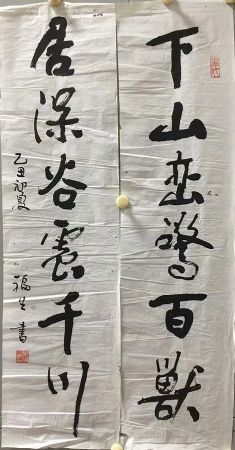 下山峦惊百兽
居深谷震千川
乙丑初夏
福生书